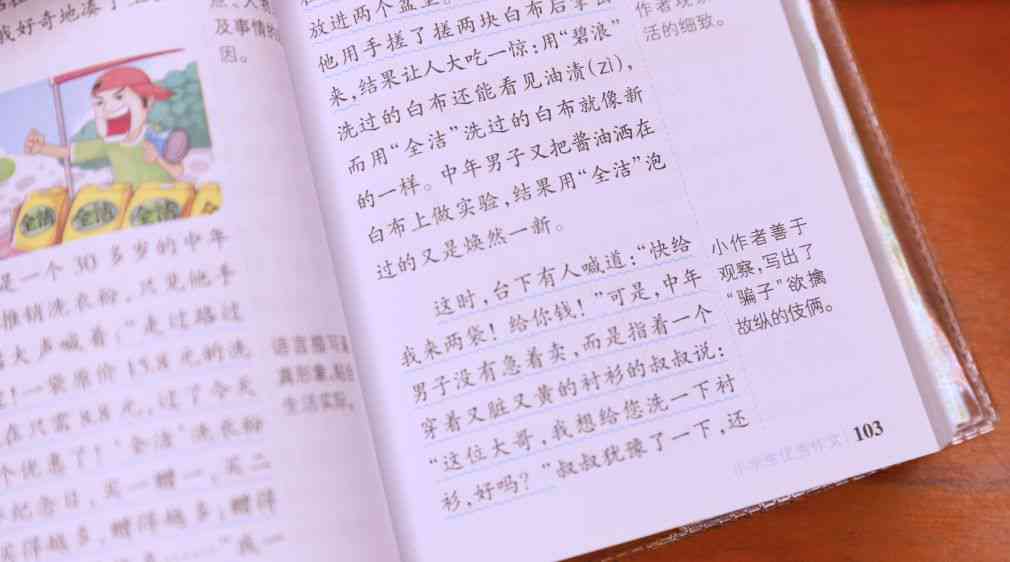 我好奇地凑了上
及事情的
因。
全洁
全洁
全洁
是一个30多岁的中年
推销洗衣粉，只见他手
大声喊着：“走过路过
！一袋原价15.8元的洗
在只需8.8元，过了今天
个优惠了！‘全洁’洗衣粉
纪念日，买一赠一，买二
买得越多，赠得越多；赠得
语言描写
真形象，贴合
生活实际。
放进两个盆里
他用手搓了搓两块白布后拿出
来，结果让人大吃一惊：用“碧浪”
洗过的白布还能看见油渍(zì)，
而用“全洁”洗过的白布就像新
的一样。中年男子又把酱油洒在
白布上做实验，结果用“全洁”泡
过的又是焕然一新。
这时，台下有人喊道：“快给
我来两袋！给你钱！”可是，中年
男子没有急着卖，而是指着一个
穿着又脏又黄的衬衫的叔叔说：
“这位大哥，我想给您洗一下衬
衫，好吗？”叔叔犹豫了一下，还
作者观察
活的细致。
小作者善于
观察，写出了
“骗子”欲擒
故纵的伎俩。
小学生优秀作文 103